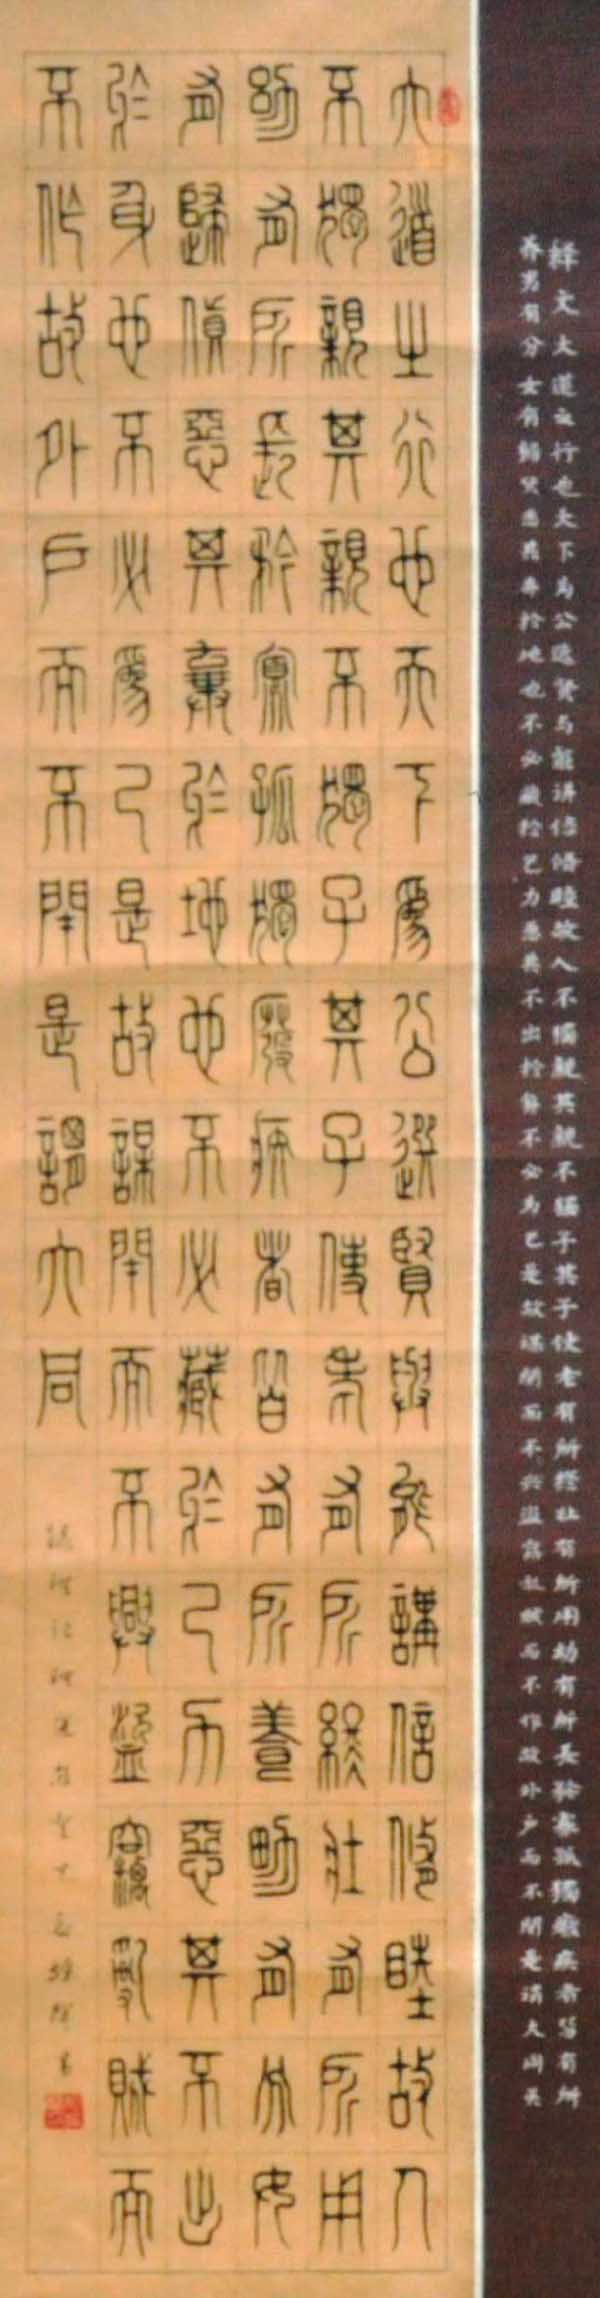 释文大道之行也天下为公选贤与能讲信修睦故人不獨親其親不獨子其子使老有所终壮有所用幼有所长矜寡孤獨癈疾者皆有所
养男有分女有归货恶其弃於地也不必藏於己力恶其不出於身不必为己是故谋闭而不兴盗窃乱贼而不作故外户而不闭是谓大同矣
大道之行也天下爲公選賢與能講信修睦故人
不獨親其親不獨子其子使老有所終壯有所用
幼有所長矜寡孤獨廢疾者皆有所養男有分女
有歸貨惡其棄於地也不必藏於己力惡其不出
於身也不必爲己是故謀閉而不興盜竊亂賊而
不作故外戶而不閉是謂大同